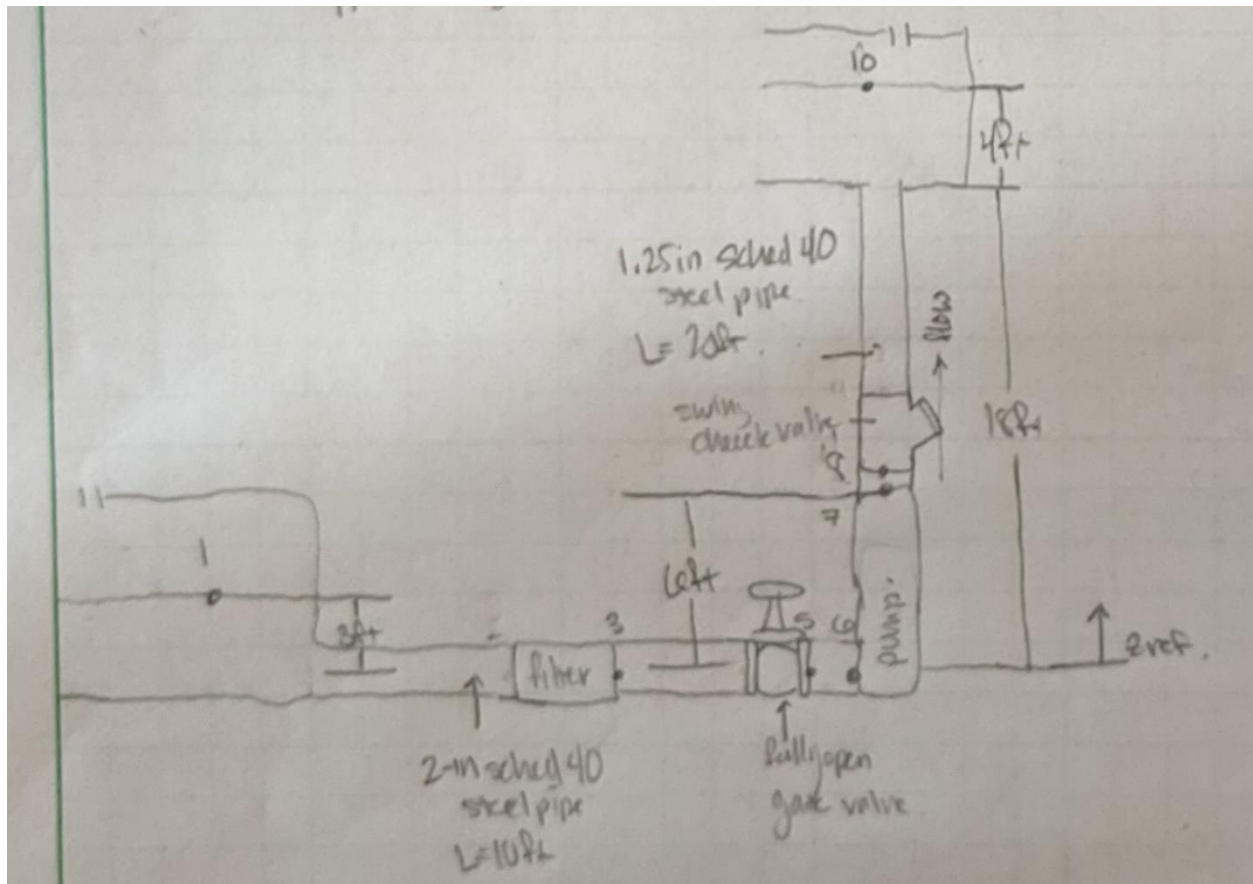 10
4ft
1.25in sched 40
steel pipe
L= 20ft.
flow
swing
check valve
18ft
8
7
1
6ft
3ft
3
5
6
pump.
filter
zref.
2-in sched 40
steel pipe
L=10ft
fully open
gate valve